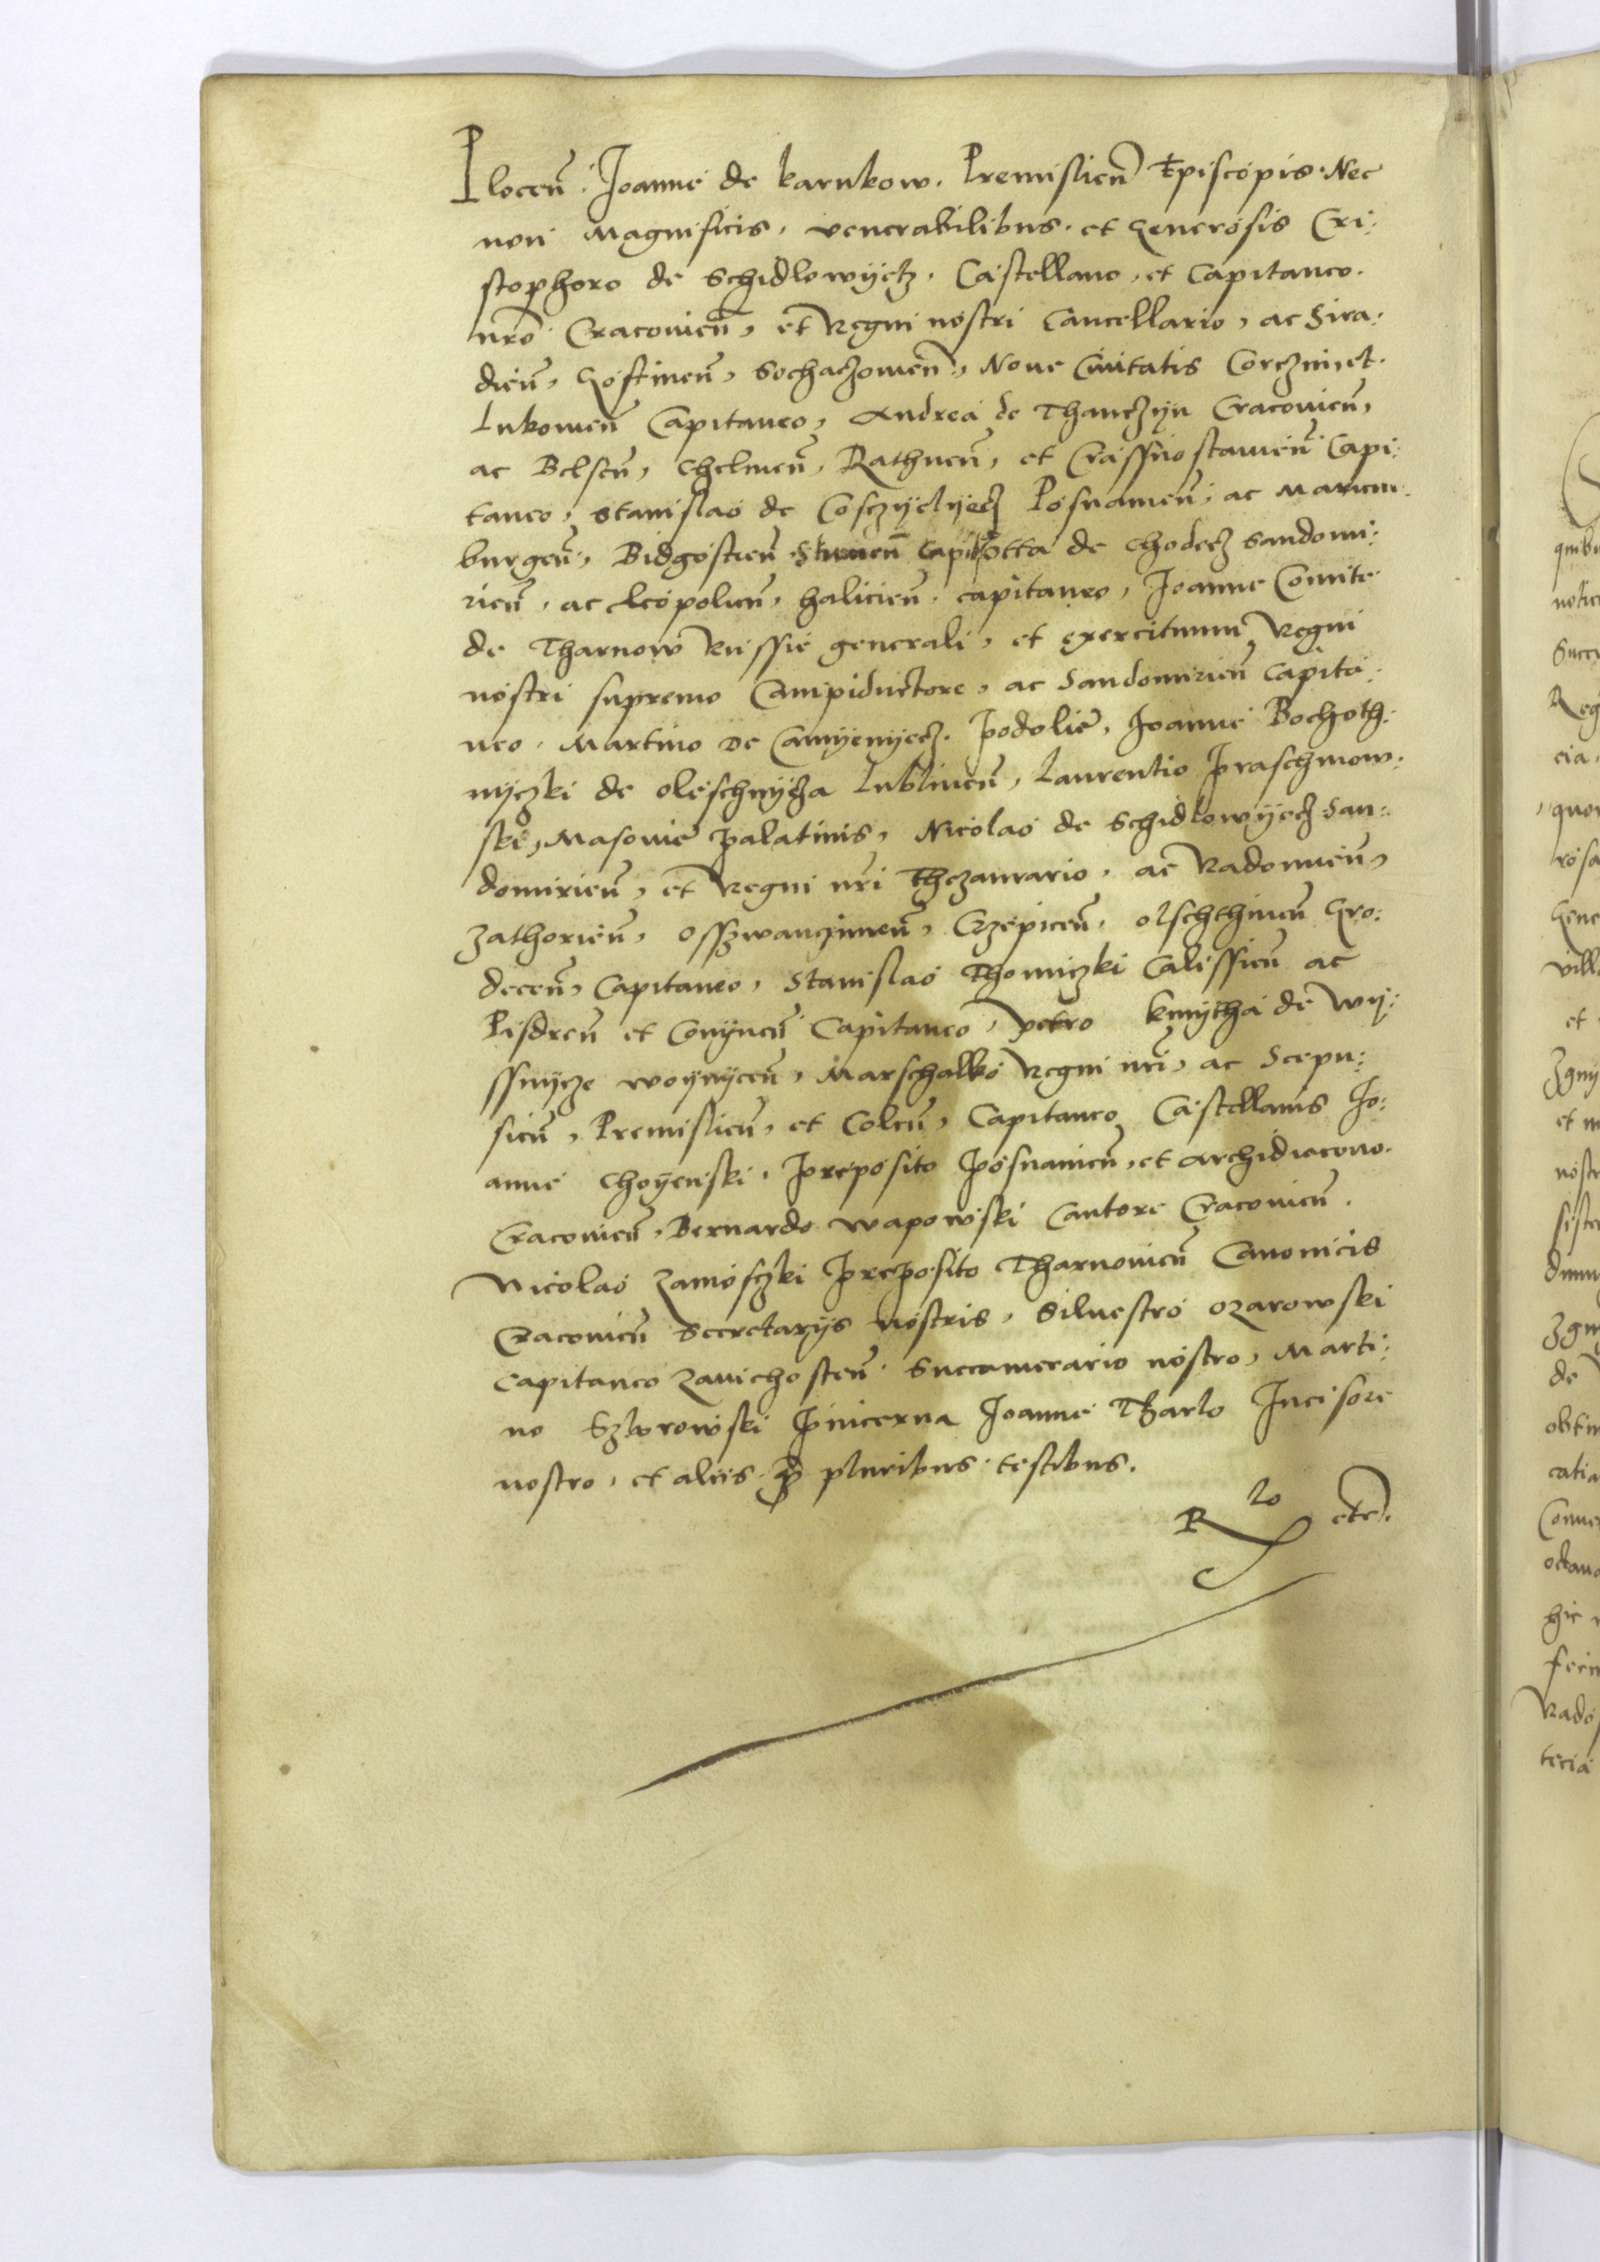 Plocen̄. Joanne de karnkow. Premislien̄ Episcopis. Nec
non Magnificis, venerabilibus, et Generosis Cri:
stophoro de Schidlowyetz. Castellano, et Capitaneo.
nrō Cracovien̄, et Regni nostri Cancellario, ac Sira:
dien̄, Gostinen̄, Sochaczovien̄, Nove Civitatis Corczin et.
Lukovien̄ Capitaneo, Andrea de Thanczyn Cracovien̄,
ac Belsen̄, Chelmen̄, Rathnen̄, et Crassnostavien̄ Capi:
taneo, Stanislao de Cosczyelyecz Posnanien̄, ac Mariem:
burgen̄, Bidgostien̄ Capit Otta de Chodecz Sandomi:
rien̄, ac Leopolien̄, halicien̄, capitaneo, Joanne Comite
de Tharnow Russie generali, et exercituum Regni
nostri supremo Campiductore, ac Sandomirien̄ Capita:
neo, Martino de Camyenyecz. Podolie, Joanne Bochoth:
nyczki de oleschnycza Lublinen̄, Laurentio Praschmow:
ski, Masovie palatinis, Nicolao de Schidlowyecz San:
domirien̄, et Regni nrī Thezaurario, ac Radomien̄,
Zathorien̄, Osszwanczimen̄, Crzepicen̄, olschthinen̄ Gro:
decen̄ Capitaneo, Stanislao Thomiczki Calissien̄ ac
Pisdren̄ et Conynen̄ Capitaneo, petro kmytha de Wy:
ssnycze woynycen̄, Marschalko Regni nrī, ac Scepu:
sien̄, Premislien̄, et Colen̄, Capitaneo, Castellanis Jo:
anne Choyenski, Preposito Posnanien̄, et Archidiacono.
Cracovien̄, Bernardo wapowski Cantore Cracovien̄.
Nicolao Zamosczki Preposito Tharnovien̄ Canonicis
Cracovien̄ Secretarijs nostris, Silvestro Ozarowski
Capitaneo Zavichosten̄ Succamerario nostro, Marti:
no Pincerna Joanne Tharlo Incisore
nostro, et aliis p̄ pluribus testibus.
R lo etc̄.